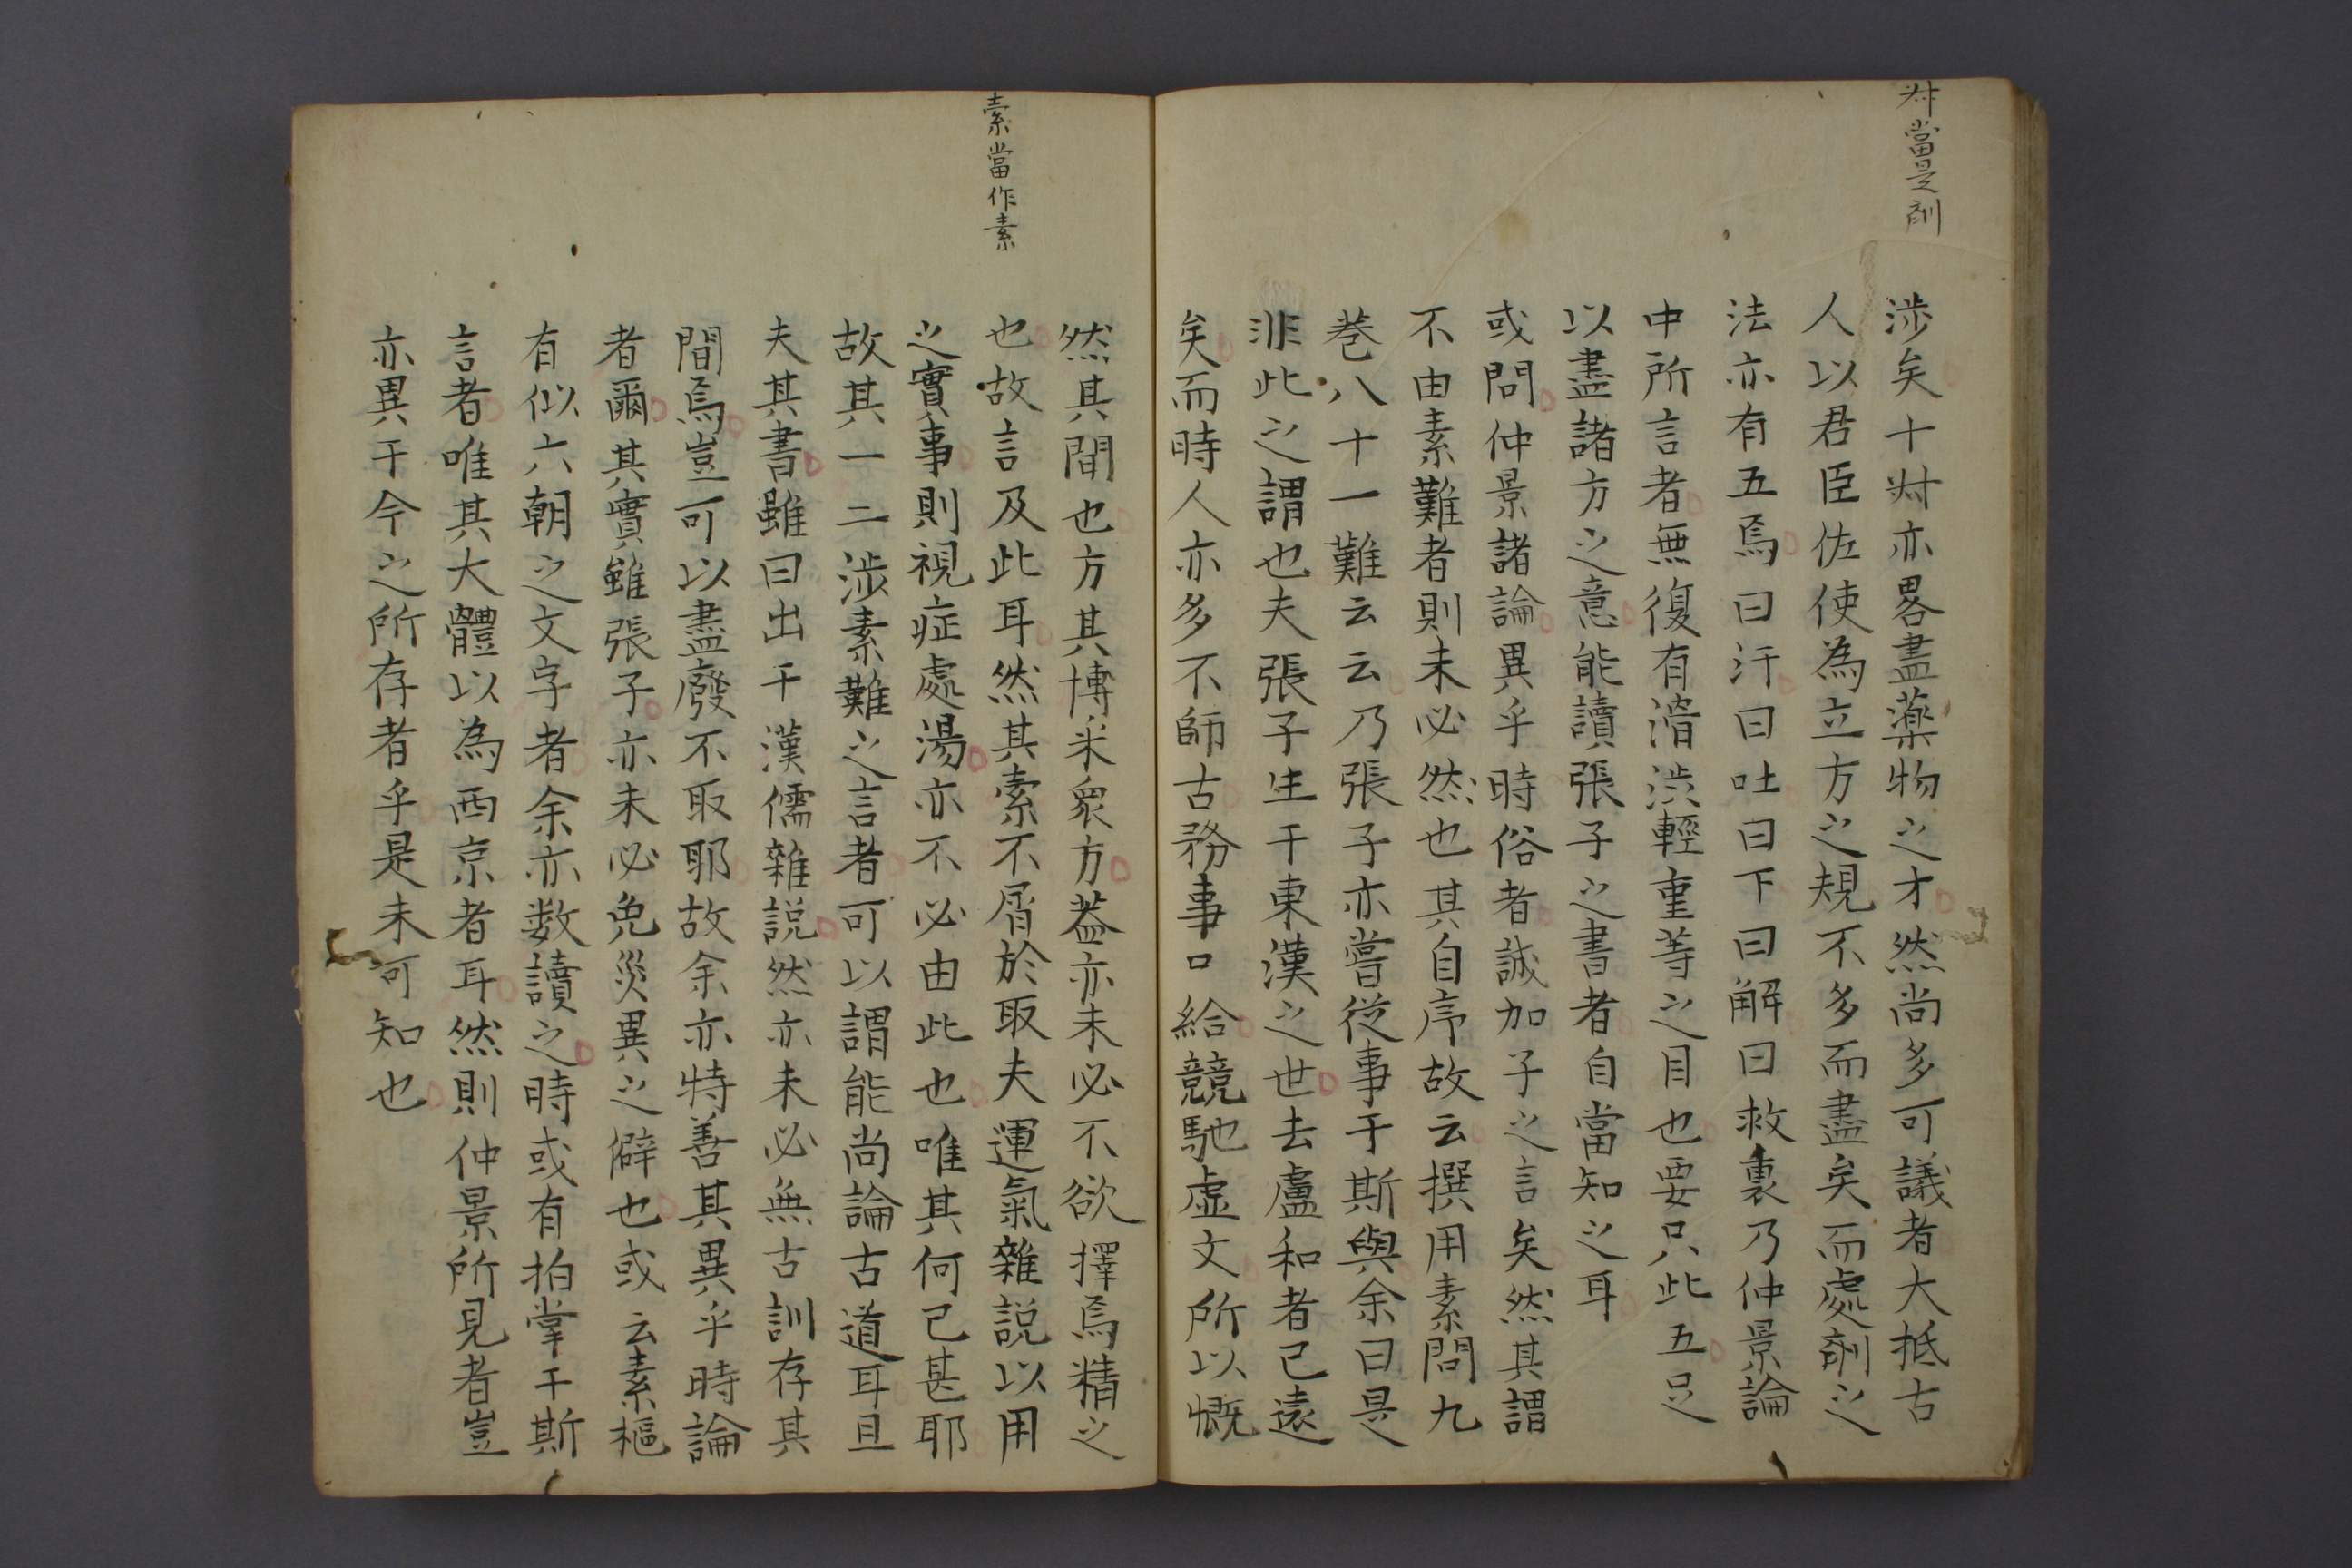 対當是劑
渉矣十対亦畧盡藥物之才然尚多可議者大抵古
人以君臣佐使為立方之規不多而盡矣而處劑之
法亦有五焉曰汗曰吐曰下曰解曰救裏乃仲景論
中所言者無復有滑渋輕重等之目也要只此五足
以盡諸方之意能讀張子之書者自當知之耳
或問仲景諸論異乎時俗者誠加子之言矣然其謂
不由素難者則未必然也其自序故云撰用素問九
巻八十一難云云乃張子亦嘗従事于斯與余曰是
非此之謂也夫張子生于東漢之世去盧和者已遠
矣而時人亦多不師古務事口給競馳虚文所以慨
素當作素
然其間也方其博采衆方葢亦未必不欲擇焉精之
也故言及此耳然其索不屑於取夫運氣雜説以用
之實事則視症處湯亦不必由此也唯其何已甚耶
故其一二渉素難之言者可以謂能尚論古道耳且
夫其書雖曰出于漢儒雜説然亦未必無古訓存其
間焉豈可以盡廢不取耶故余亦特善其異乎時論
者爾其實雖張子亦未必免災異之僻也或云素樞
有似六朝之文字者余亦数讀之時或有拍掌于斯
言者唯其大體以為西京者耳然則仲景所見者豈
亦異于今之所存者乎是未可知也